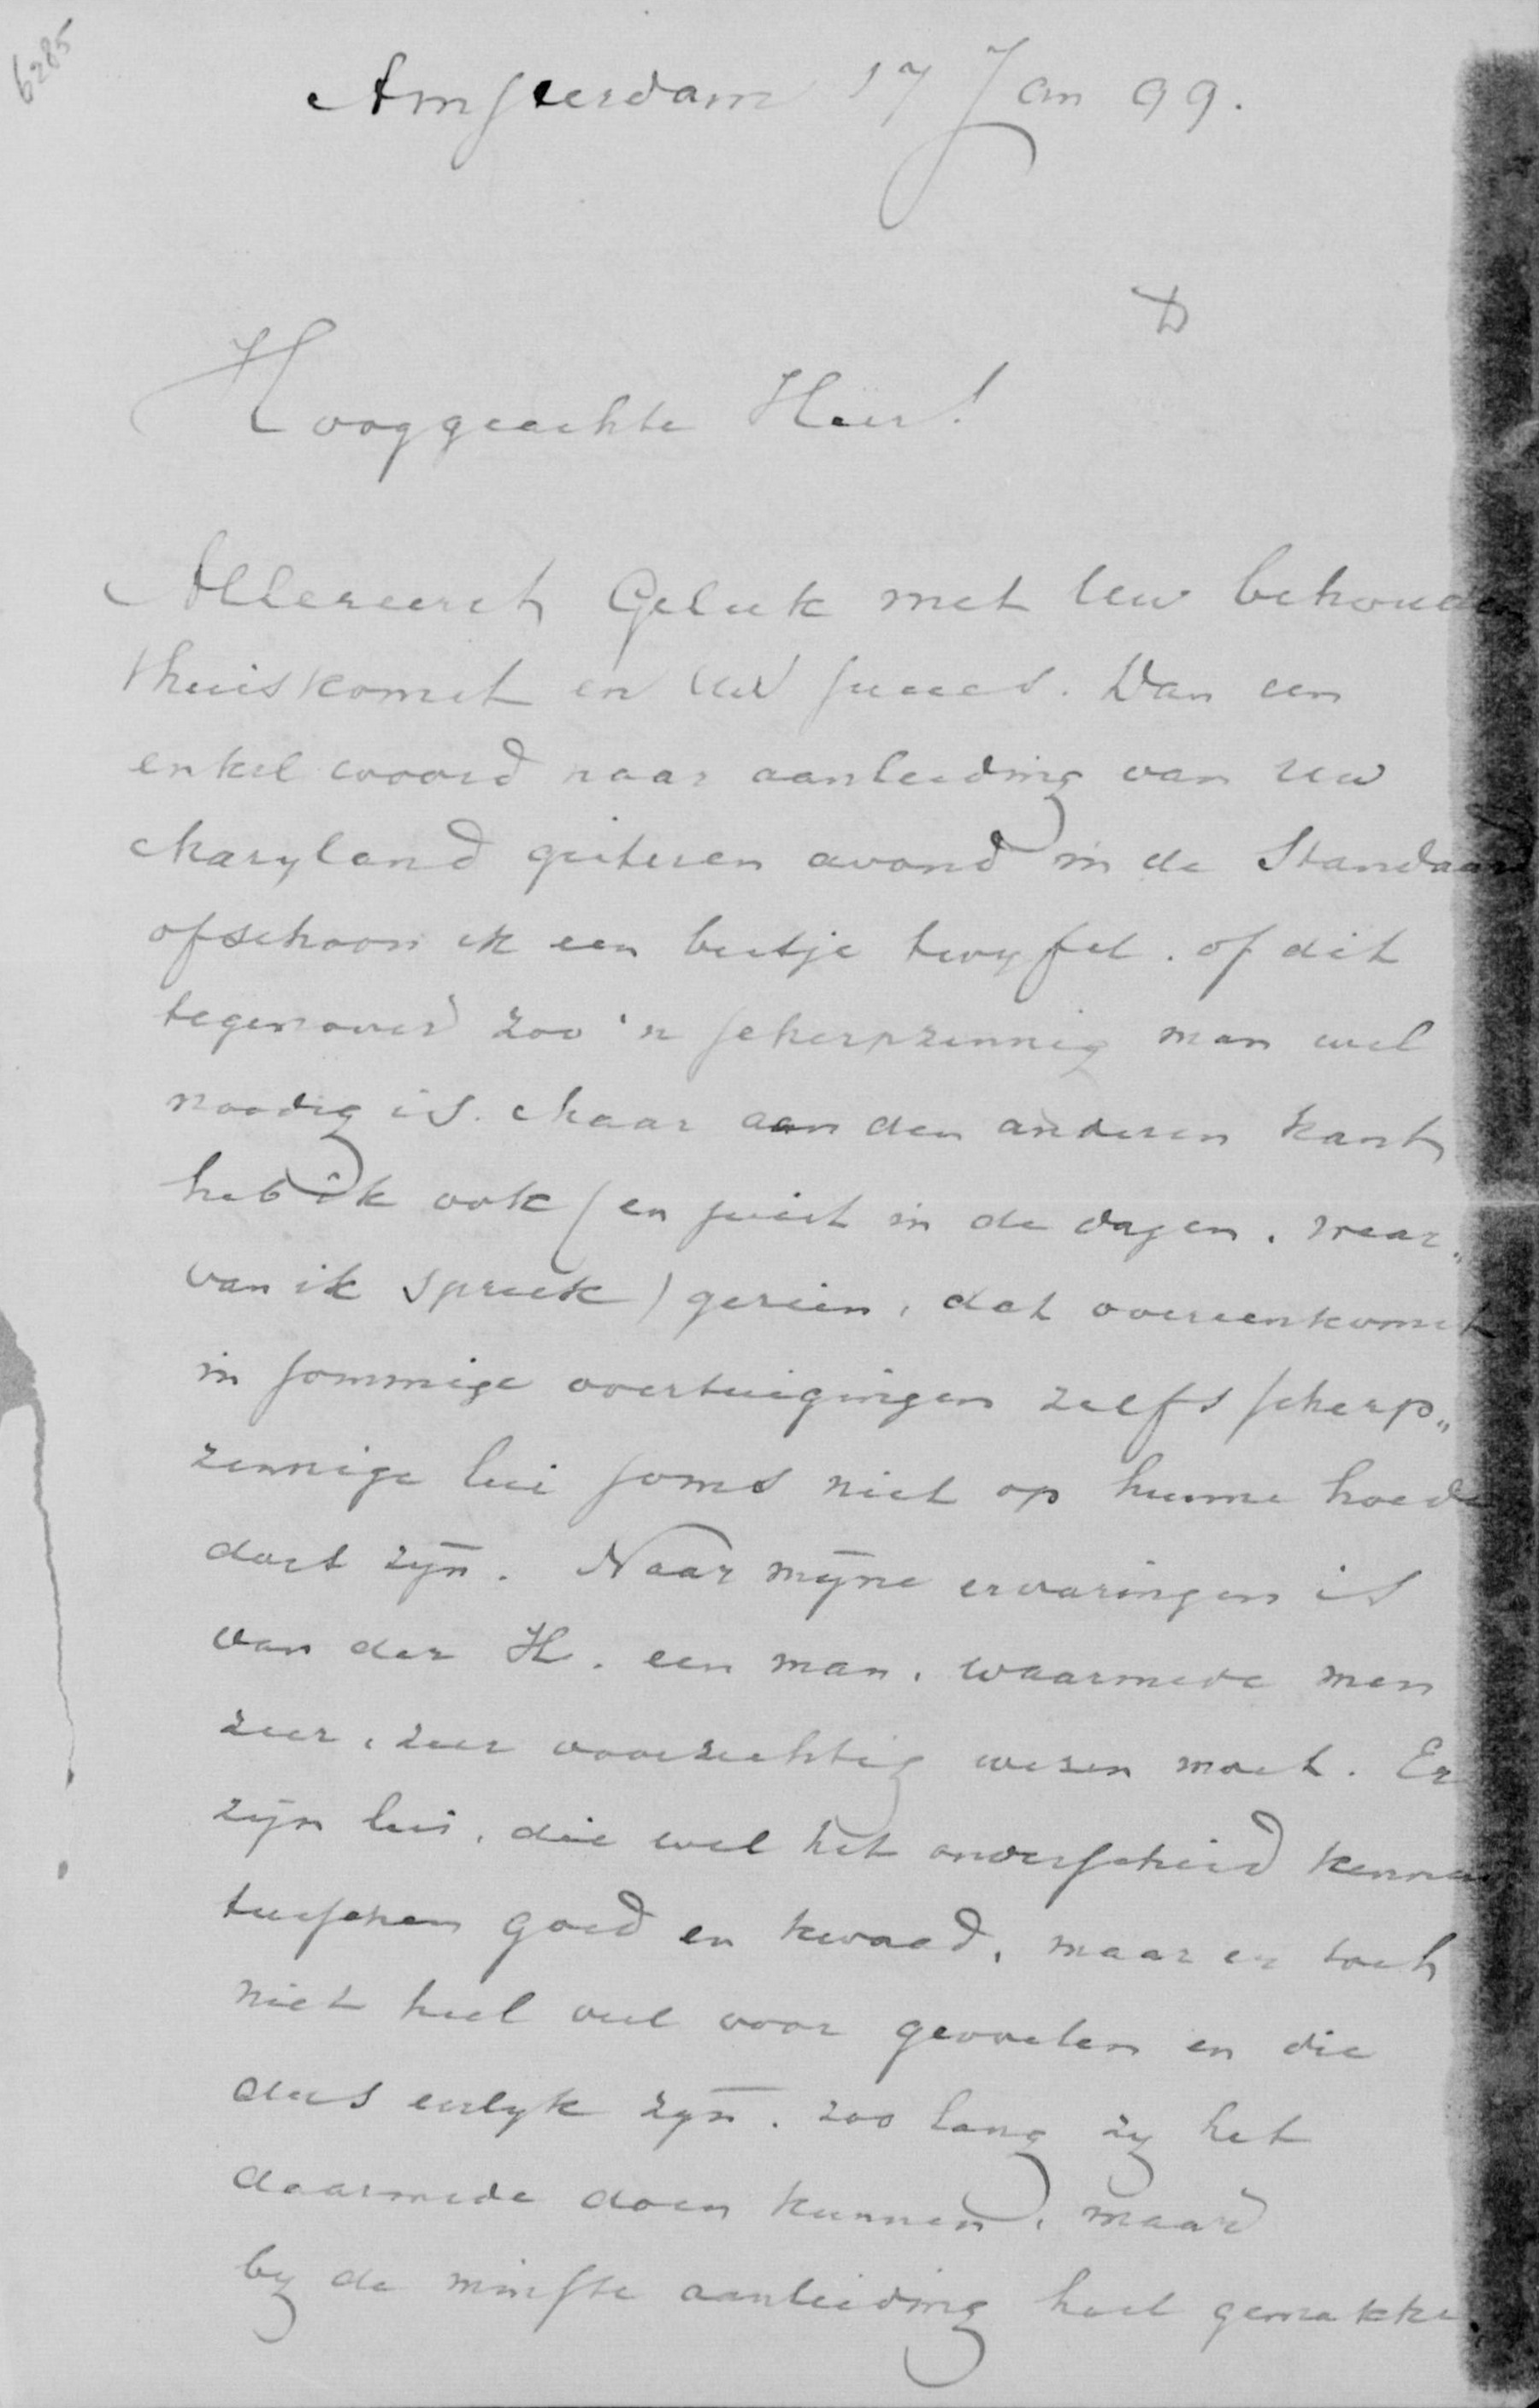 6285
Amsterdam 17 Jan 99.
Hooggeachte Heer!
Allereerst Geluk met Uw behouden
thuiskomst en Uw succes. Dan een
enkel woord naar aanleiding van Uw
Maryland gisteren avond in de Standaard
ofschoon ik een beetje twyfel, of dit
tegenover zoo'n scherpzinnig man wel
noodig is. Maar aan den anderen kant
heb ik ook (en juist in de dagen, waar„
van ik spreek) gezien, dat overeenkomst
in sommige overtuigingen zelfs scherp„
zinnige lui soms niet op hunne hoede
doet zyn. Naar myne ervaringen is
van der H. een man, waarmede men
zeer, zeer voorzichtig wezen moet. Er
zyn lui, die wel het onderscheid kennen
tusschen goed en kwaad, maar er toch
niet heel veel voor gevoelen en die
dus eerlyk zyn, zoo lang zy het
daarmede doen kunnen, maar
by de minste aanleiding heel gemakke